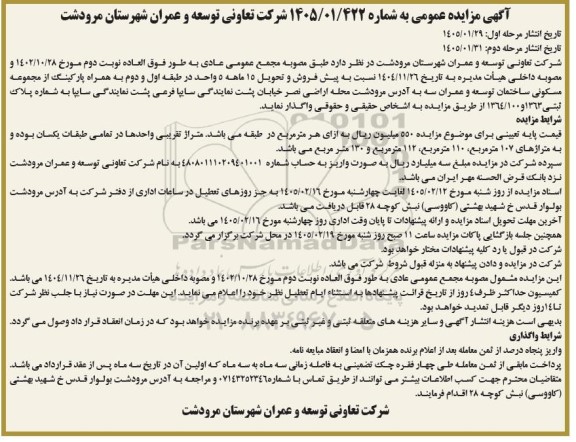 آگهی مزایده عمومی به شماره ۱۴۰۵/۰۱/۴۲۲ شرکت تعاونی توسعه و عمران شهرستان مرودشت
تاریخ انتشار مرحله اول: ۱۴۰۵/۰۱/۲۹
تاریخ انتشار مرحله دوم: ۱۴۰۵/۰۱/۳۱
شرکت تعاونی توسعه و عمران شهرستان مرودشت در نظر دارد طبق مصوبه مجمع عمومی عادی به طور فوق العاده نوبت دوم مورخ ۱۴۰۲/۱۰/۲۸ و
مصوبه داخلی هیأت مدیره به تاریخ ۱۴۰۴/۱۱/۲۶ نسبت به پیش فروش و تحویل ۱۵ ماهه ۵ واحد در طبقه اول و دوم به همراه پارکینگ از مجموعه
مسکونی ساختمان توسعه و عمران سه به آدرس مرودشت محله اراضی نصر خیابان پشت نمایندگی سایپا فرعی پشت نمایندگی سایپا به شماره پلاک
ثبتی ۱۳۶۳و۱۳۶۴/۱۰۰ از طریق مزایده به اشخاص حقیقی و حقوقی واگذار نماید.
شرایط مزایده
قیمت پایه تعیینی برای موضوع مزایده ۵۵۰ میلیون ریال به ازای هر مترمربع در طبقه می باشد. متراژ تقریبی واحدها در تمامی طبقات یکسان بوده و
به متراژهای ۱۰۷ مترمربع، ۱۱۰ مترمربع، ۱۱۲ مترمربع و ۱۳۰ متر مربع می باشد.
سپرده شرکت در مزایده مبلغ سه میلیارد ریال به صورت واریز به حساب شماره ۴۸۰۸۰۱۱۱۰۲۰۹۴۰۱۰۰۱ به نام شرکت تعاونی توسعه و عمران مرودشت
نزد بانک قرض الحسنه مهر ایران می باشد.
اسناد مزایده از روز شنبه مورخ ۱۴۰۵/۰۲/۱۲ لغایت چهارشنبه مورخ ۱۴۰۵/۰۲/۱۶ به جز روزهای تعطیل در ساعات اداری از دفتر شرکت به آدرس مرودشت
بولوار قدس خ شهید بهشتی (کاووسی) نبش کوچه ۲۸ قابل دریافت می باشد.
آخرین مهلت تحویل اسناد مزایده و ارائه پیشنهادات تا پایان وقت اداری روز چهارشنبه مورخ ۱۴۰۵/۰۲/۱۶ می باشد.
همچنین جلسه بازگشایی پاکات مزایده ساعت ۱۱ صبح روز شنبه مورخ ۱۴۰۵/۰۲/۱۹ در محل شرکت برگزار می گردد.
شرکت در قبول یا رد کلیه پیشنهادات مختار خواهد بود.
شرکت در مزایده و دادن پیشنهاد به منزله قبول شروط شرکت می باشد.
این مزایده مشمول مصوبه مجمع عمومی عادی به طور فوق العاده نوبت دوم مورخ ۱۴۰۲/۱۰/۲۸ و مصوبه داخلی هیأت مدیره به تاریخ ۱۴۰۴/۱۱/۲۶ می باشد.
کمیسیون حداکثر ظرف ۴ روز از تاریخ قرائت پیشنهادها به استثناء ایام تعطیل نظر خود را اعلام می نماید. این مهلت در صورت نیاز با جلب نظر شرکت
تا ۱۴ روز دیگر قابل تمدید خواهد بود.
بدیهی است هزینه انتشار آگهی و سایر هزینه های متعلقه ثبتی و غیر ثبتی بر عهده برنده مزایده خواهد بود که در زمان انعقاد قرار داد وصول می گردد.
شرایط واگذاری
واریز پنجاه درصد از ثمن معامله بعد از اعلام برنده همزمان با امضا و انعقاد مبایعه نامه.
پرداخت مابقی از ثمن معامله طی چهار فقره چک تضمینی به فاصله زمانی سه ماه به سه ماه که اولین آن در تاریخ سه ماه پس از عقد قرارداد می باشد.
متقاضیان محترم جهت کسب اطلاعات بیشتر می توانند از طریق تماس با شماره ۰۷۱۴۳۲۵۲۳۴۶ و مراجعه به آدرس مرودشت بولوار قدس خ شهید بهشتی
(کاووسی) نبش کوچه ۲۸ اقدام فرمایند.
شرکت تعاونی توسعه و عمران شهرستان مرودشت